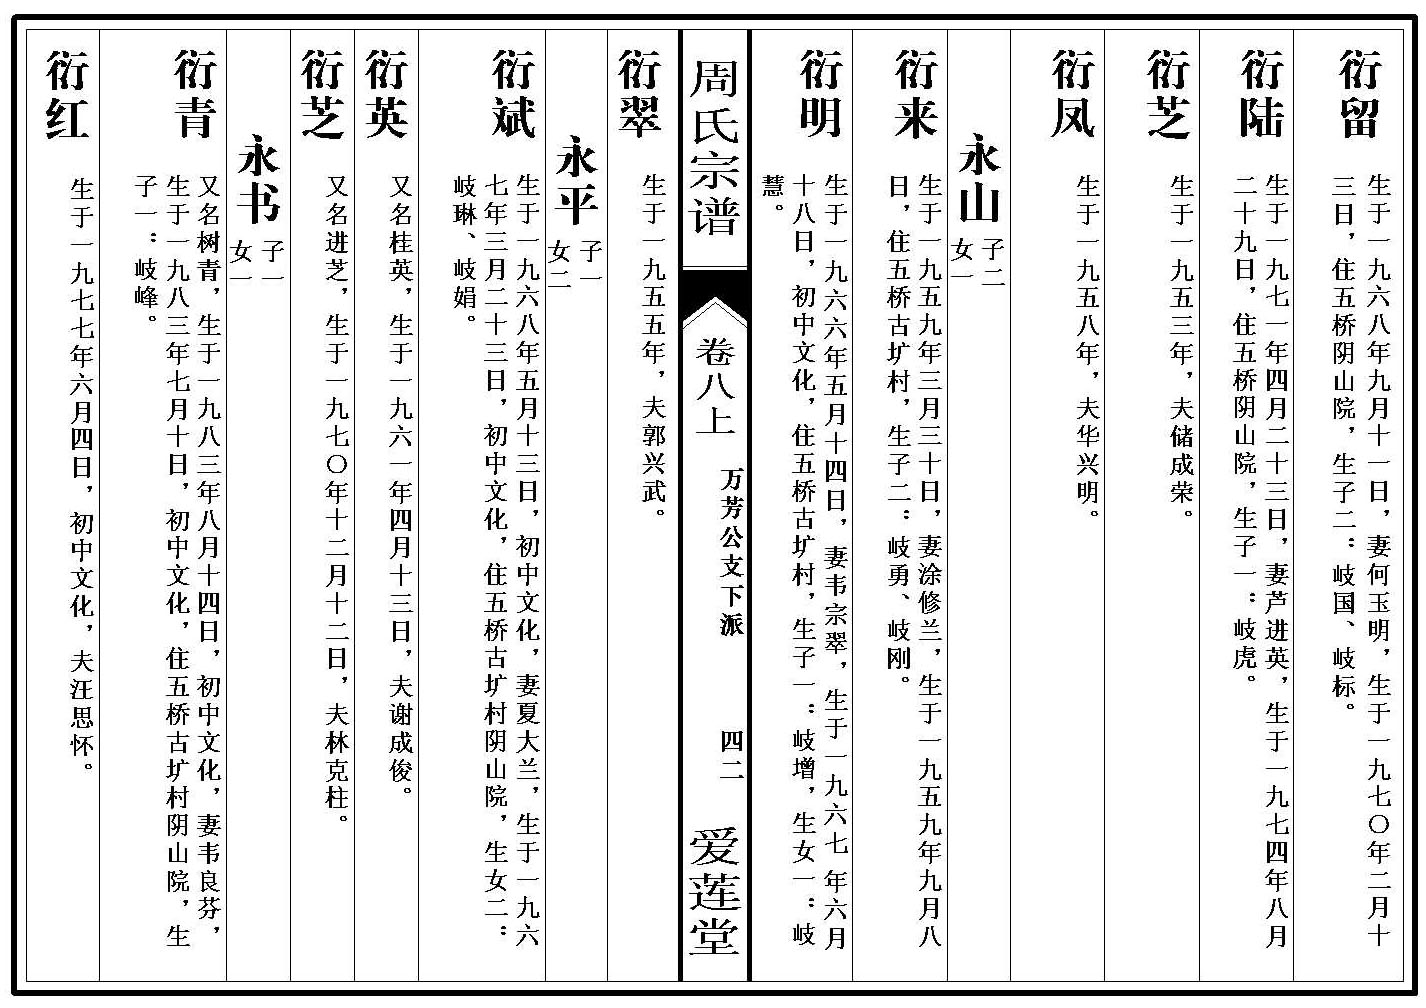 衍留
生于一九六八年九月十一日，妻何玉明，生于一九七〇年二月十
三日，住五桥阴山院，生子二：岐国、岐标。
衍陆
生于一九七一年四月二十三日，妻芦进英，生于一九七四年八月
二十九日，住五桥阴山院，生子一：岐虎。
衍芝
生于一九五三年，夫储成荣。
衍凤
生于一九五八年，夫华兴明。
永山
子二
女一
衍来
生于一九五九年三月三十日，妻涂修兰，生于一九五九年九月八
日，住五桥古圹村，生子二：岐勇、岐刚。
衍明
生于一九六六年五月十四日，妻韦宗翠，生于一九六七年六月
十八日，初中文化，住五桥古圹村，生子一：岐增，生女一：岐
慧。
周氏宗谱
卷八上
万芳公支下派
四二
爱莲堂
衍翠
生于一九五五年，夫郭兴武。
永平
子一
女二
衍斌
生于一九六八年五月十三日，初中文化，妻夏大兰，生于一九六
七年三月二十三日，初中文化，住五桥古圹村阴山院，生女二：
岐琳、岐娟。
衍英
又名桂英，生于一九六一年四月十三日，夫谢成俊。
衍芝
又名进芝，生于一九七〇年十二月十二日，夫林克柱。
永书
子一
女一
衍青
又名树青，生于一九八三年八月十四日，初中文化，妻韦良芬，
生于一九八三年七月十日，初中文化，住五桥古圹村阴山院，生
子一：岐峰。
衍红
生于一九七七年六月四日，初中文化，夫汪思怀。